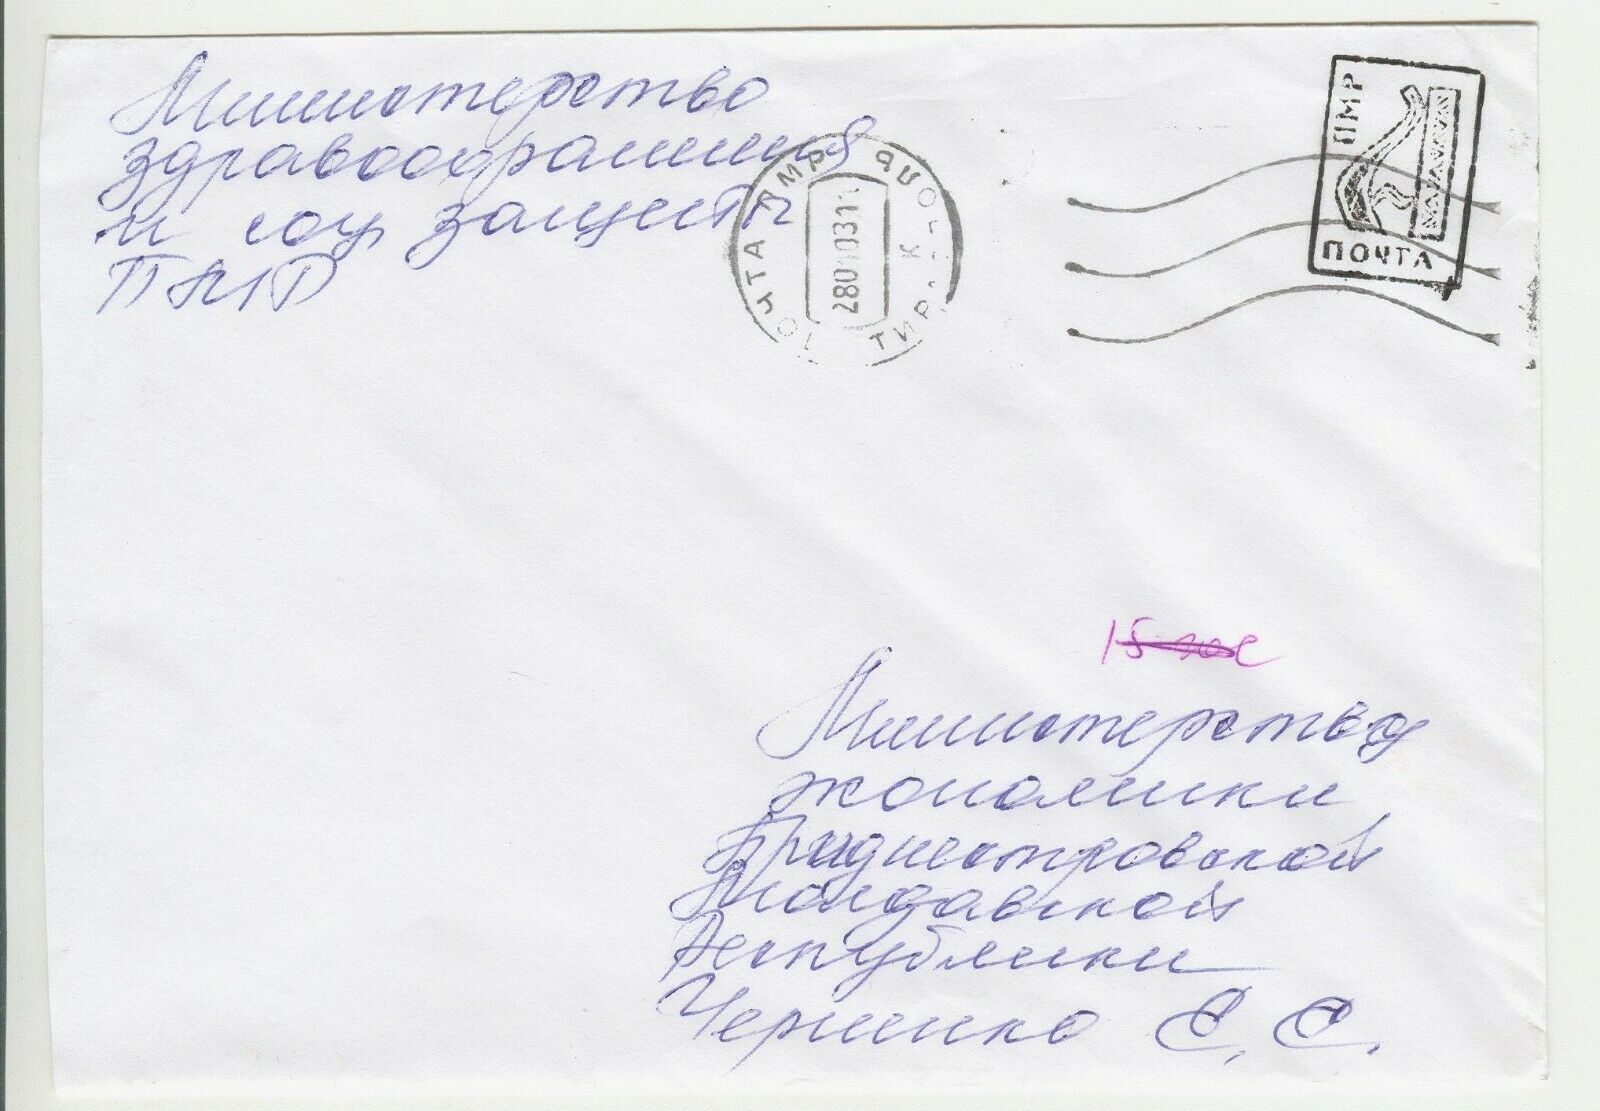 Министерство
здравоохранения
и соц защиты
ПМР
ПОЧТА ПМР
280103
К
ПМР
ПОЧТА
Министерство
экономики
Приднестровской
Молдавской
Республики
Черненко С. С.